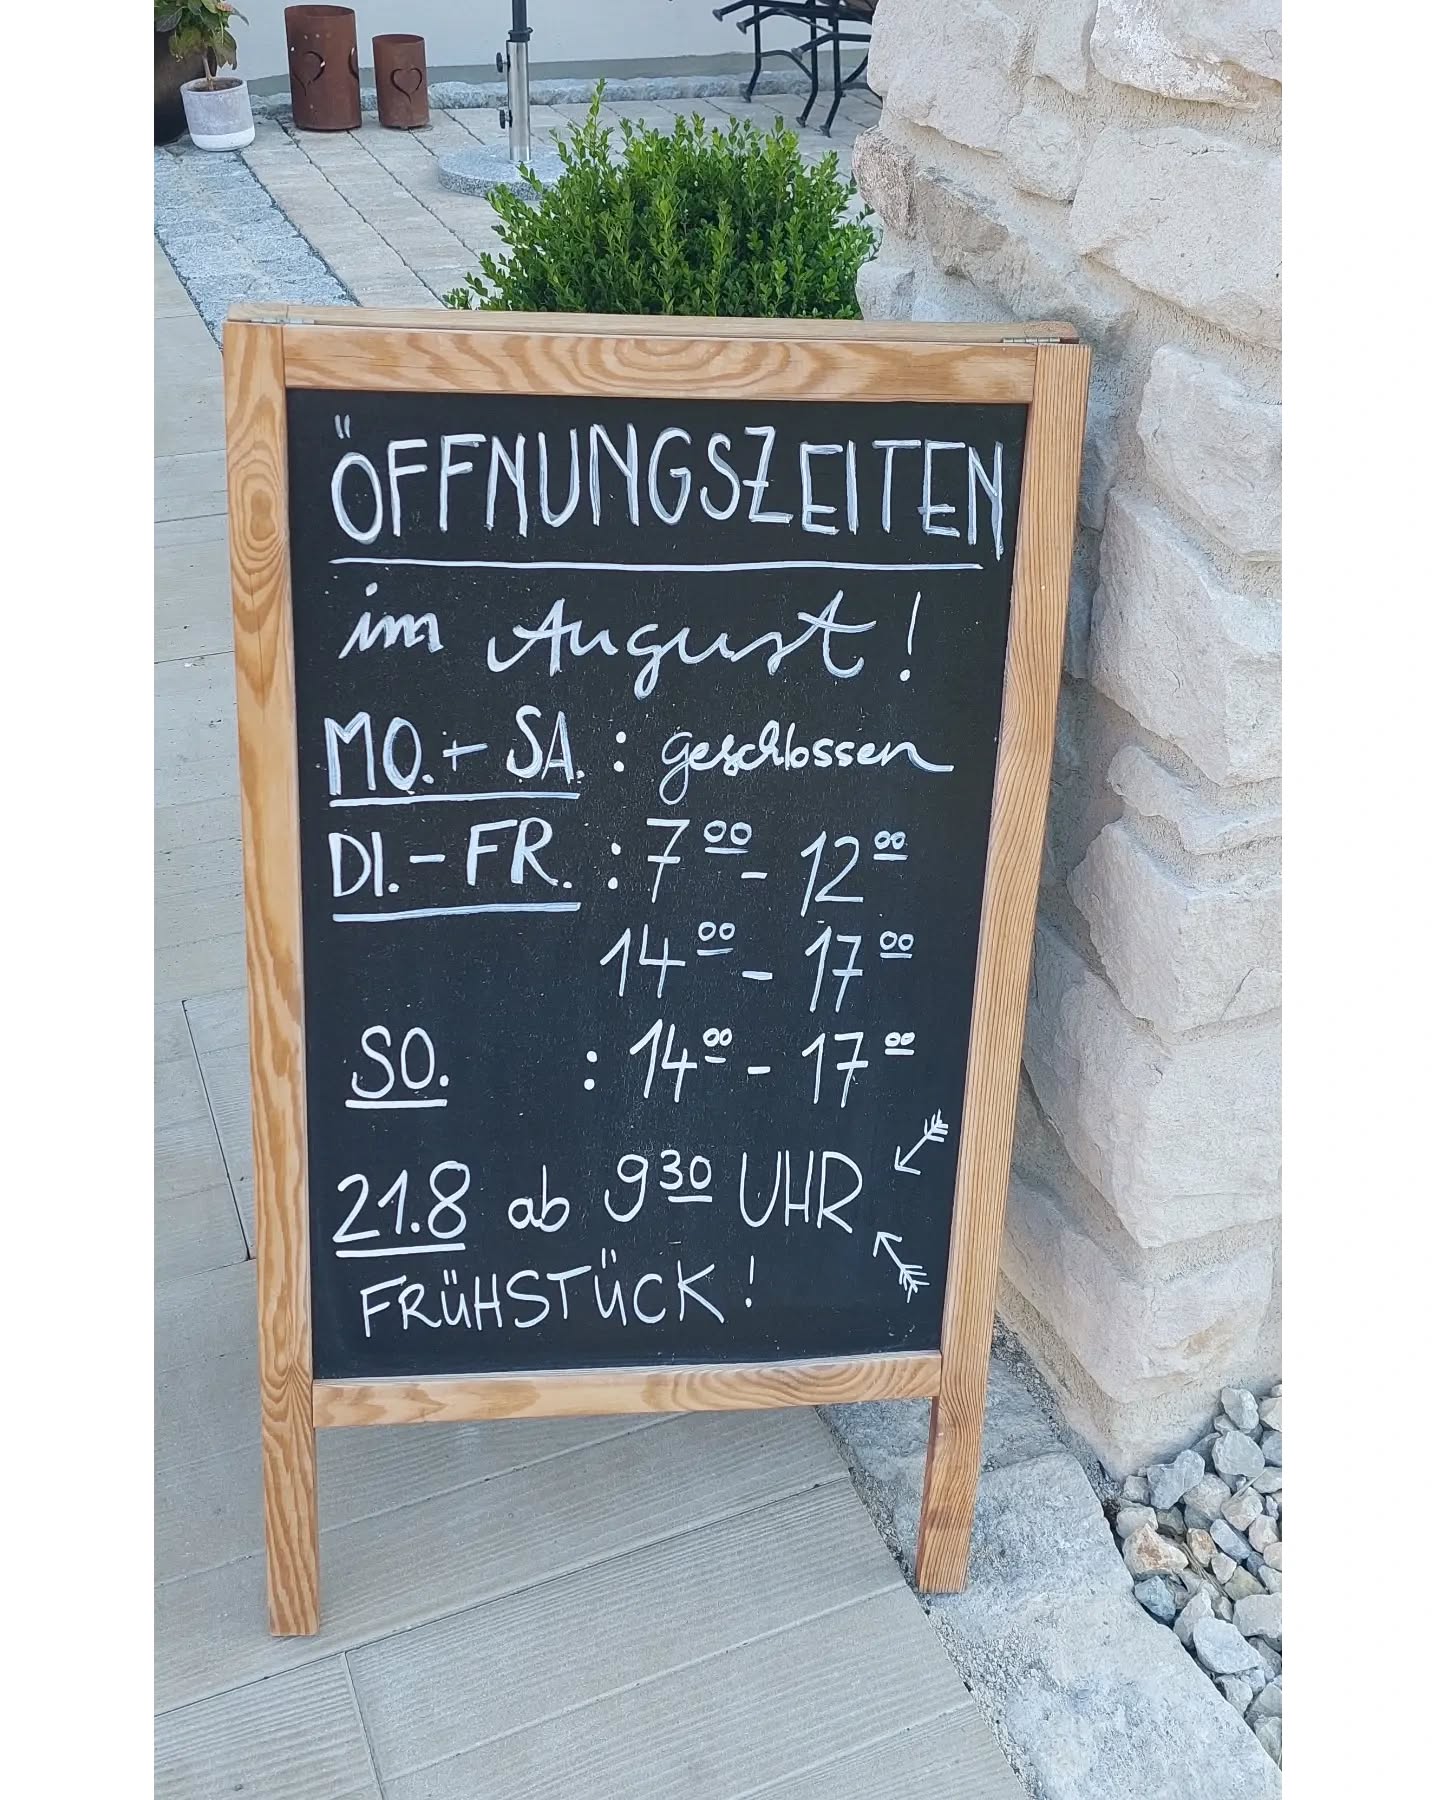 ÖFFNUNGSZEITEN
im August!
MO.+ SA. : geschlossen
DI.- FR. : 7 00 - 12 00
14 00 - 17 00
SO. : 14 00 - 17 00
21.8 ab 9 30 UHR
FRÜHSTÜCK!